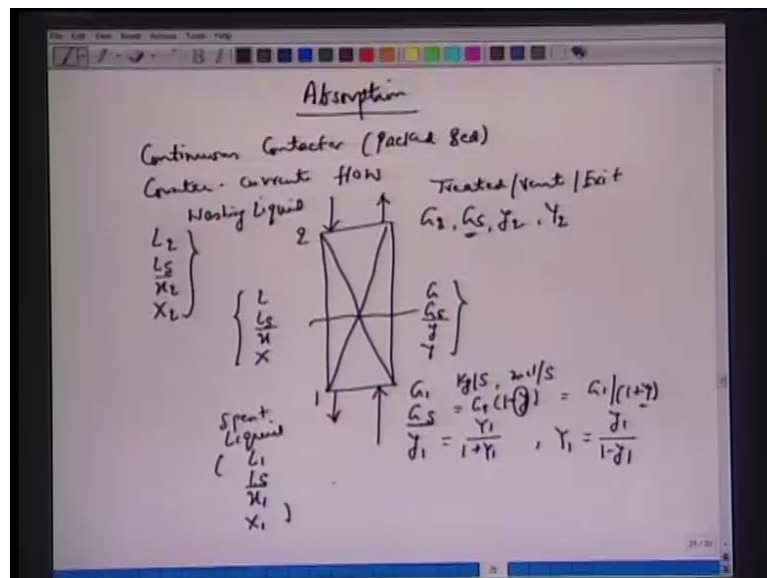 File Edit View Insert Actions Tools Help
Absorption
Continuous Contactor (Packed Bed)
Counter-current flow
Treated/Vent/Exit
Washing Liquid
G2, Gs, y2, Y2
L2
Ls
x2
X2
2
L
Ls
x
X
G
Gs
y
Y
1
G1 kg/s, mol/s
Gs = G1(1-y) = G1/(1+y)
y1 = Y1/(1+Y1), Y1 = y1/(1-y1)
Spent
Liquid
L1
Ls
x1
X1